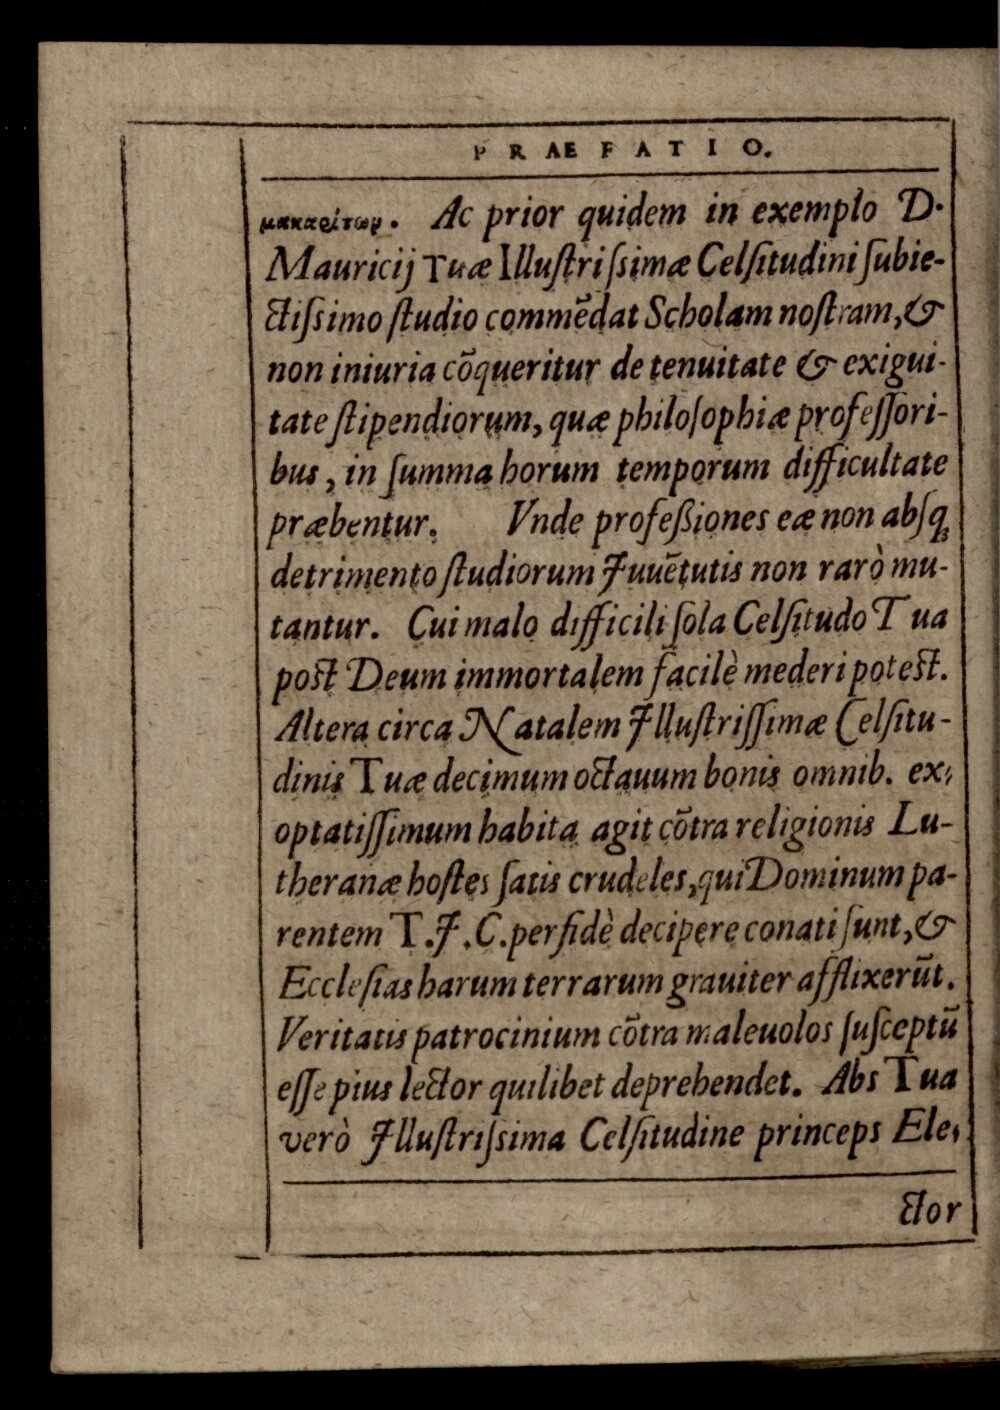 PRAEFATIO.
μακαρίτων. Ac prior quidem in exemplo D.
Mauricij Tuæ Illuſtriſsimæ Celſitudini ſubie-
ctiſsimo ſtudio commẽdat Scholam noſtram, &
non iniuria cõqueritur de tenuitate & exigui-
tate ſtipendiorum, quæ philoſophiæ profeſſori-
bus, in ſumma horum temporum difficultate
præbentur. Vnde profeßiones eæ non abſq;
detrimento ſtudiorum Juuẽtutis non rarò mu-
tantur. Cui malo difficili ſola Celſitudo Tua
poſt Deum immortalem facilè mederi poteſt.
Altera circa Natalem Jlluſtriſſimæ Celſitu-
dinis Tuæ decimum octauum bonis omnib. ex-
optatiſſimum habita agit cõtra religionis Lu-
theranæ hoſtes ſatis crudeles, qui Dominum pa-
rentem T. J. C. perfidè decipere conati ſunt, &
Eccleſias harum terrarum grauiter afflixerũt.
Veritatis patrocinium cõtra maleuolos ſuſceptũ
eſſe pius lector quilibet deprehendet. Abs Tua
verò Jlluſtriſsima Celſitudine princeps Ele-
ctor